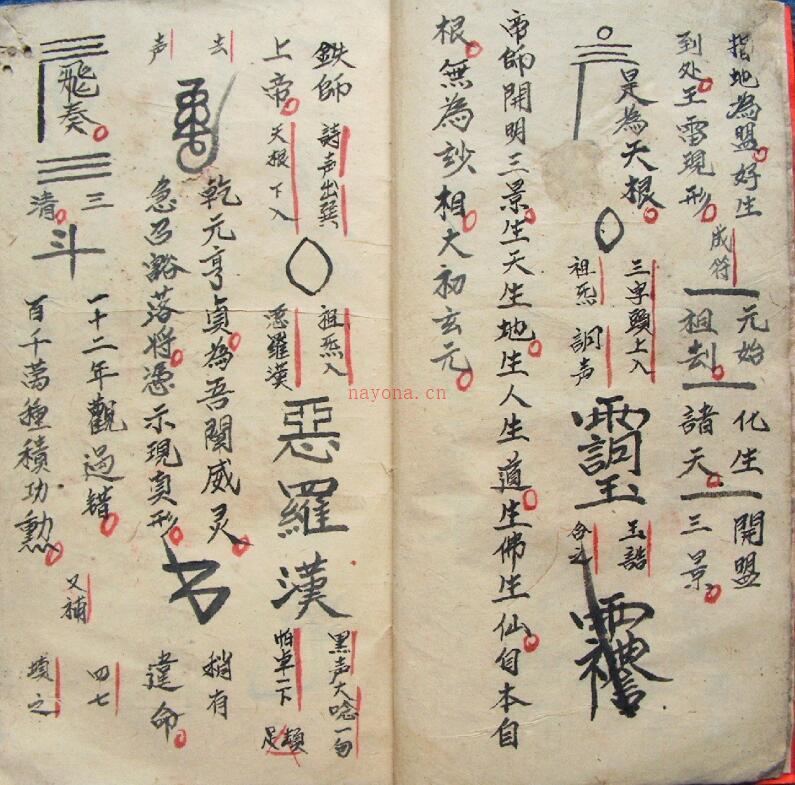 指地為盟好生
到处王雷現形
成符
元始
祖刦
化生
諸天
開盟
三景
是為天根
三字頭上入
祖炁
詞声
玉誥
合之
帝師開明三景生天生地生人生道生佛生仙自本自
根無為妙相大初玄元
鉄師
上帝
詩声出巽
天根下入
祖炁入
惡羅漢
惡羅漢
黑声大唸一句
怕卓一下
足頓
去
声
乾元亨貞為吾闡威灵
急召豁落將憑示現真形
稍有
違命
飛奏
三
清
斗
一十二年觀過錯
百千萬種積功勲
又補
四七
填之
nayona.cn